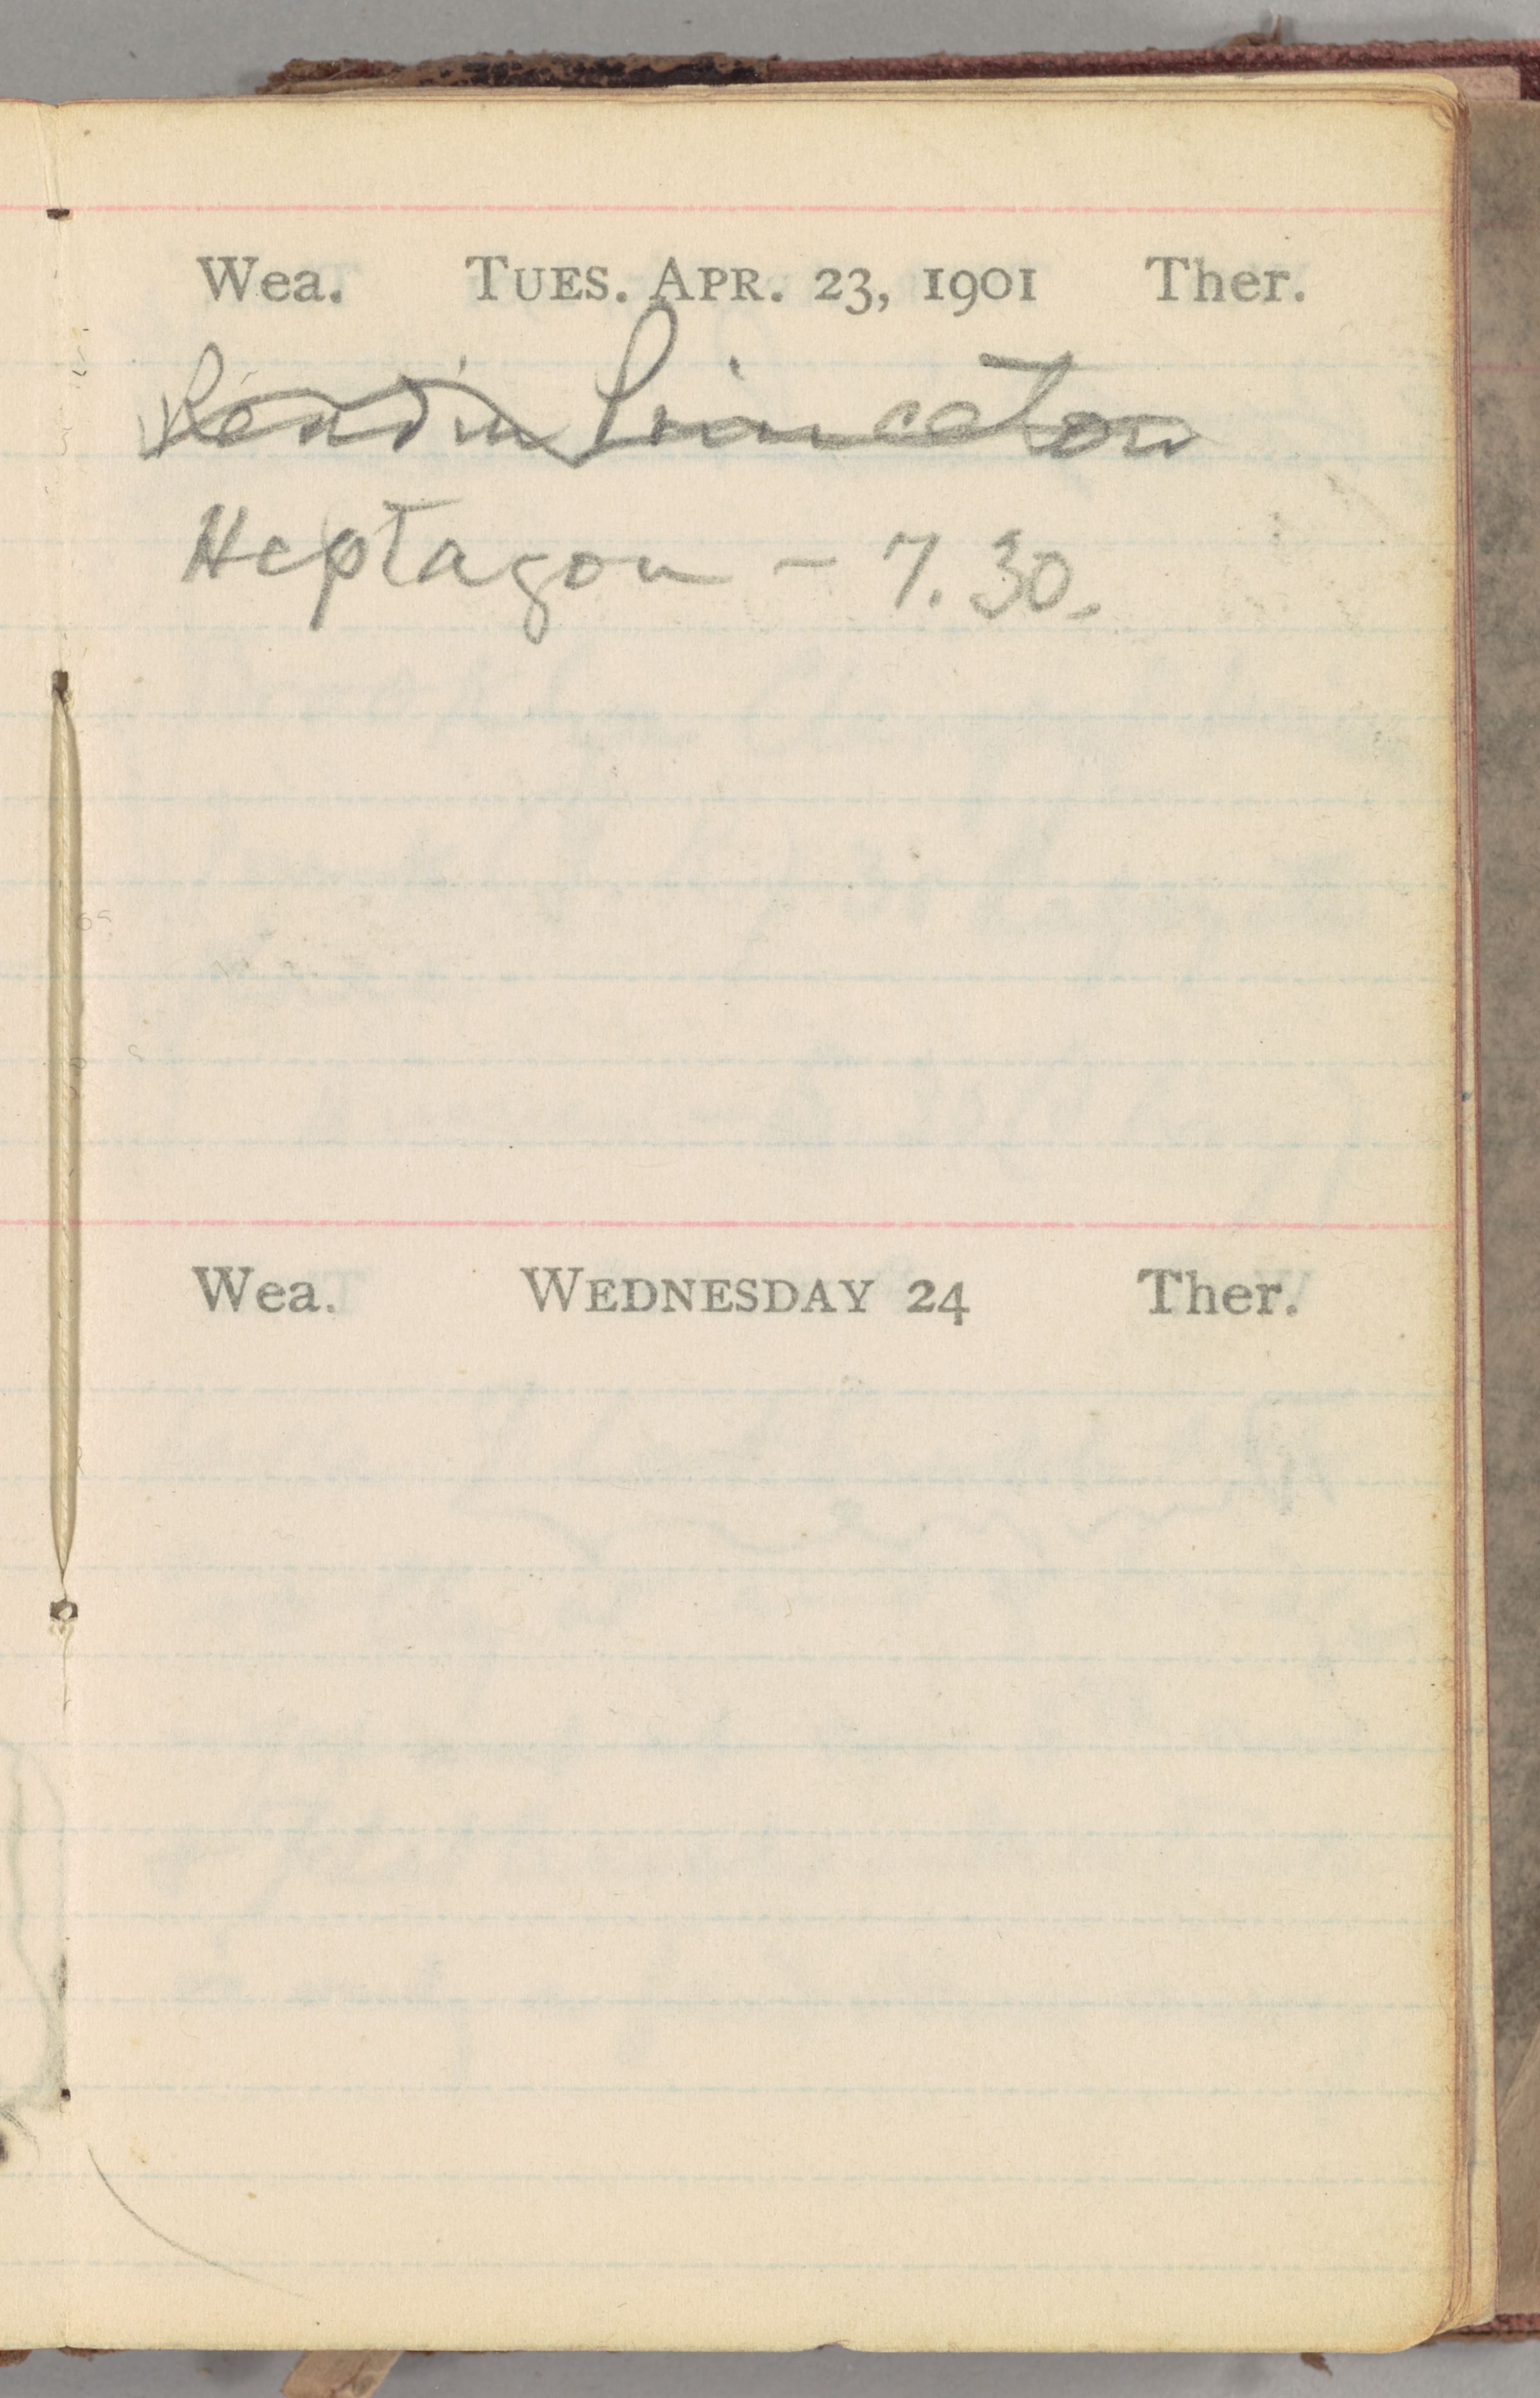 Wea. TUES. APR. 23, 1901 Ther.
Read in Princeton
Heptagon - 7.30.
Wea. WEDNESDAY 24 Ther.